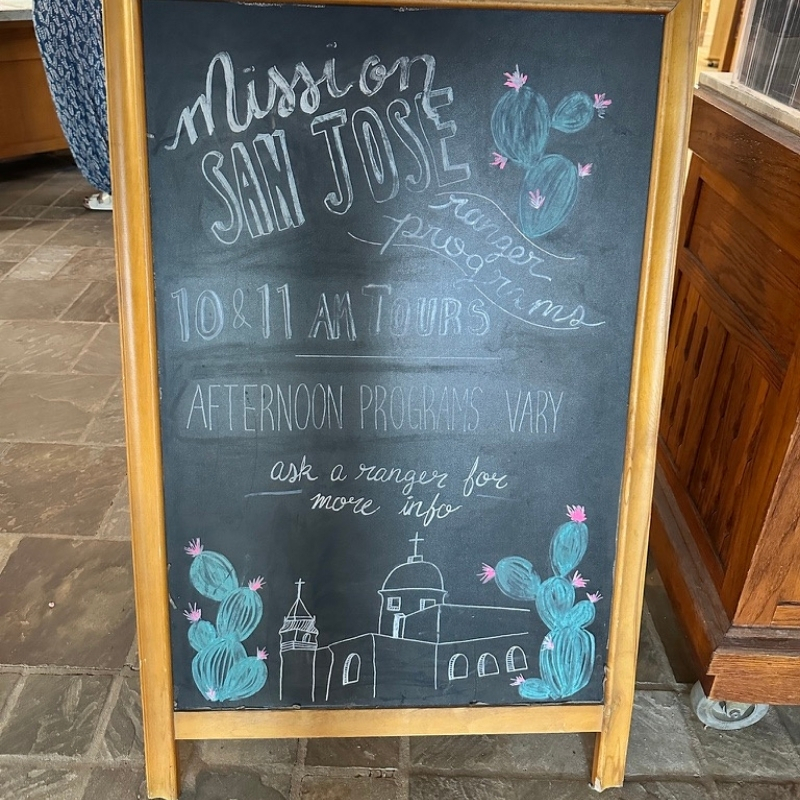 Mission
SAN JOSE
ranger
programs
10 & 11 AM TOURS
AFTERNOON PROGRAMS VARY
ask a ranger for
more info